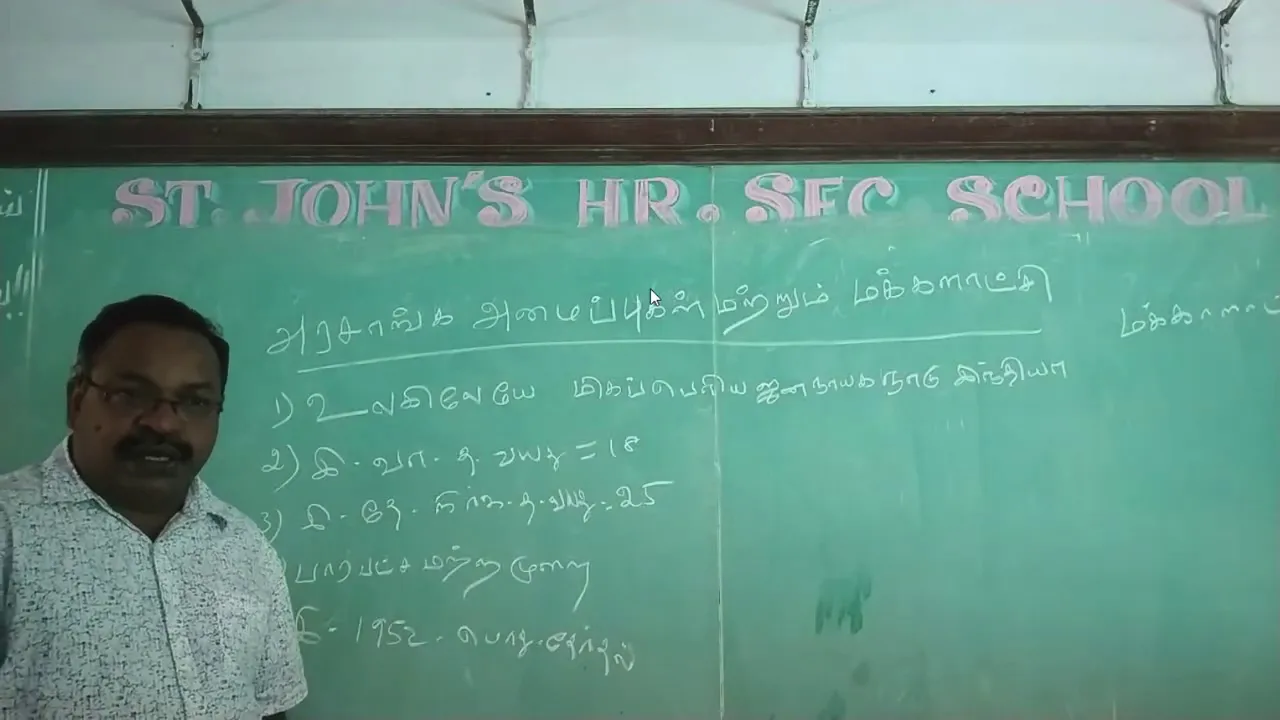 ST. JOHN'S HR. SEC SCHOOL
அரசாங்க அமைப்புகள் மற்றும் மக்களாட்சி
1) உலகிலேயே மிகப்பெரிய ஜனநாயக நாடு இந்தியா
2) இ. வா. த. வயது = 18
3) இ. தே. நிற்க. த. வயது = 25
பாரபட்ச மற்ற முறை
இ. 1952. பொது. தேர்தல்